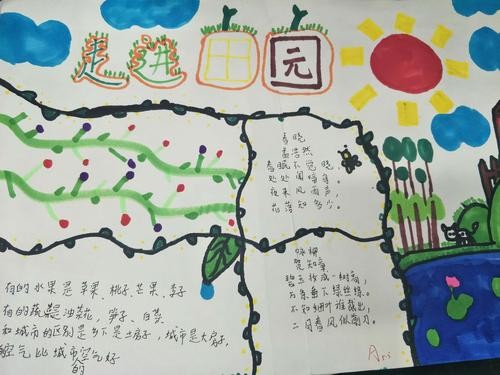 走进田园
春晓
孟浩然
春眠不觉晓，
处处闻啼鸟。
夜来风雨声，
花落知多少。
咏柳
贺知章
碧玉妆成一树高，
万条垂下绿丝绦。
不知细叶谁裁出，
二月春风似剪刀。
有的水果是苹果、桃子、芒果、李子
有的蔬菜是油菜花，笋子、白菜
和城市的区别是乡下是土房子，城市是大房子，
空气比城市空气好
的